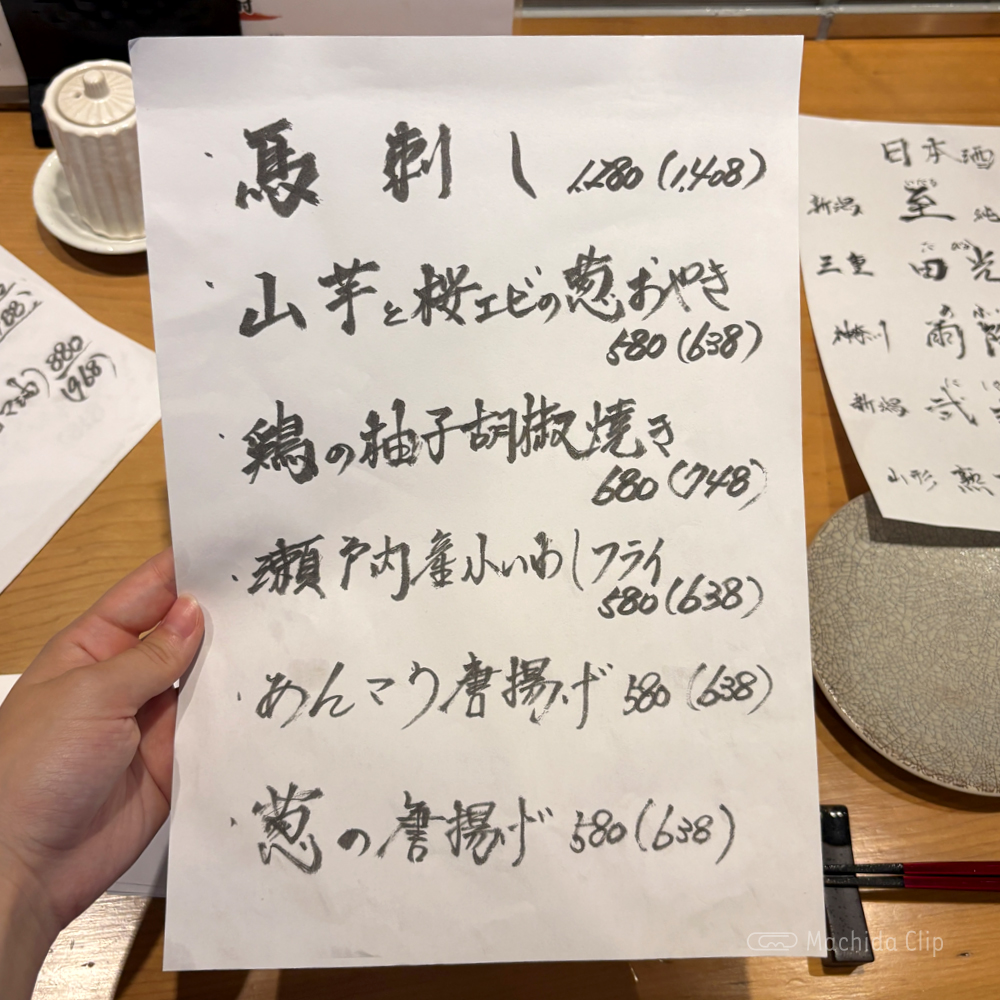 馬刺し 1,280(1,408)
山芋と桜エビの葱おやき
580(638)
鶏の柚子胡椒焼き
680(748)
瀬戸内産小いわしフライ
580(638)
あんこう唐揚げ 580(638)
葱の唐揚げ 580(638)
日本酒
新潟 至 純
三重 田光
神奈川 雨降
新潟
山形
880
(968)
Machida Clip